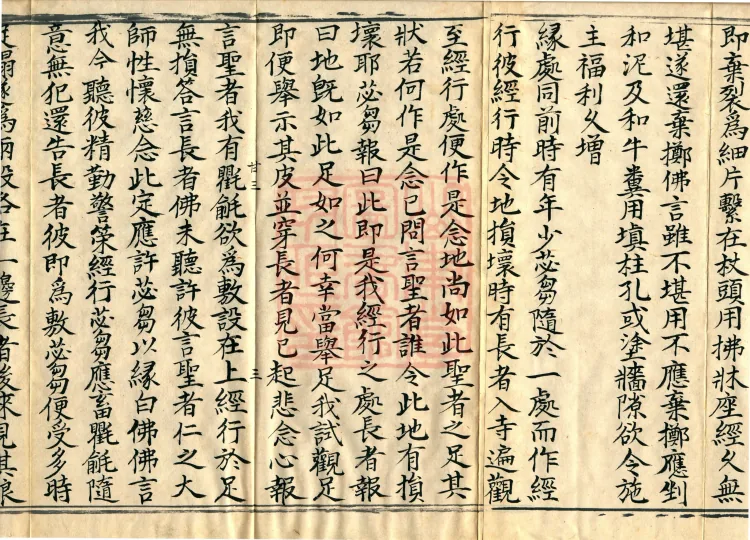 即棄裂為細片繫在杖頭用拂牀座經久無
堪遂還棄擲佛言雖不堪用不應棄擲應剉
和泥及和牛糞用填柱孔或塗牆隙欲令施
主福利久增
緣處同前時有年少苾芻隨於一處而作經
行彼經行時令地損壞時有長者入寺遍觀
至經行處便作是念地尚如此聖者之足其
狀若何作是念已問言聖者誰令此地有損
壞耶苾芻報曰此即是我經行之處長者報
曰地既如此足如之何幸當舉足我試觀足
即便舉示其皮並穿長者見已起悲念心報
廿三
三
言聖者我有氍毹欲為敷設在上經行於足
無損答言長者佛未聽許彼言聖者仁之大
師性懷慈念此定應許苾芻以緣白佛佛言
我今聽彼精勤警策經行苾芻應畜氍毹隨
意無犯還告長者彼即為敷苾芻便受多時
遂為兩段各在一邊長者後來見其狼